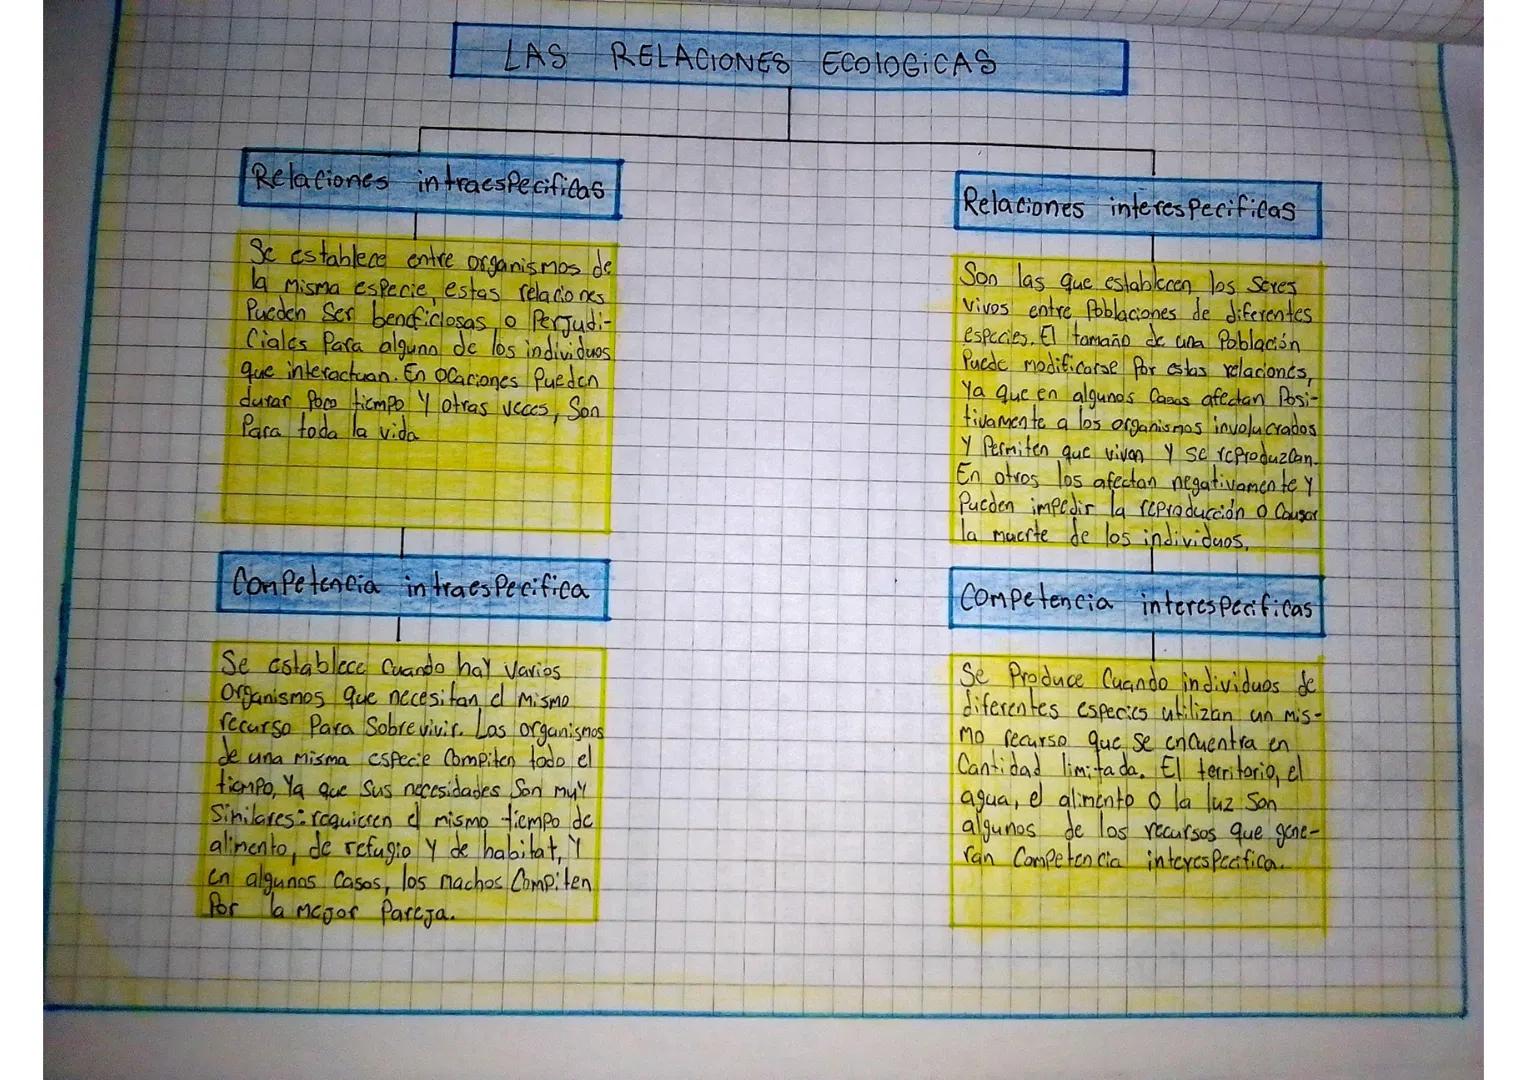 LAS RELACIONES ECOlOGiCAS
Relaciones intraespecificas
Se establece entre organismos de
la misma especie, estas relaciones
Pueden Ser beneficiosas o Perjudi-
Ciales Para alguno de los individuos
que interactuan. En ocaciones Pueden
durar Poco tiempo Y otras veces, Son
Para toda la vida
Competencia intraespecifica
Se establece Cuando hay Varios
organismos que necesitan el mismo
recurso Para Sobrevivir. Los organismos
de una misma especie Compiten todo el
tiempo, Ya que Sus necesidades Son muy
Similares: requieren el mismo tiempo de
alimento, de refugio Y de habitat, Y
en algunos Casos, los machos Compiten
Por la mejor Pareja.
Relaciones interespecificas
Son las que establecen los Seres
Vivos entre Poblaciones de diferentes
especies. El tamaño de una Población
Puede modificarse Por estas relaciones,
Ya que en algunos Casos afectan Posi-
tivamente a los organismos involucrados
Y Permiten que vivan Y se reproduzcan.
En otros los afectan negativamente Y
Pueden impedir la reproducción o Causar
la muerte de los individuos.
Competencia interespecificas
Se Produce Cuando individuos de
diferentes especies utilizan un mis-
mo recurso que se encuentra en
Cantidad limitada. El territorio, el
agua, el alimento o la luz Son
algunos de los recursos que gene-
ran Competencia interespecifica.